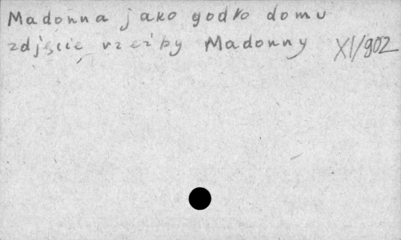 Madonna jako godło domu
zdjęcie rzeźby Madonny XI/902